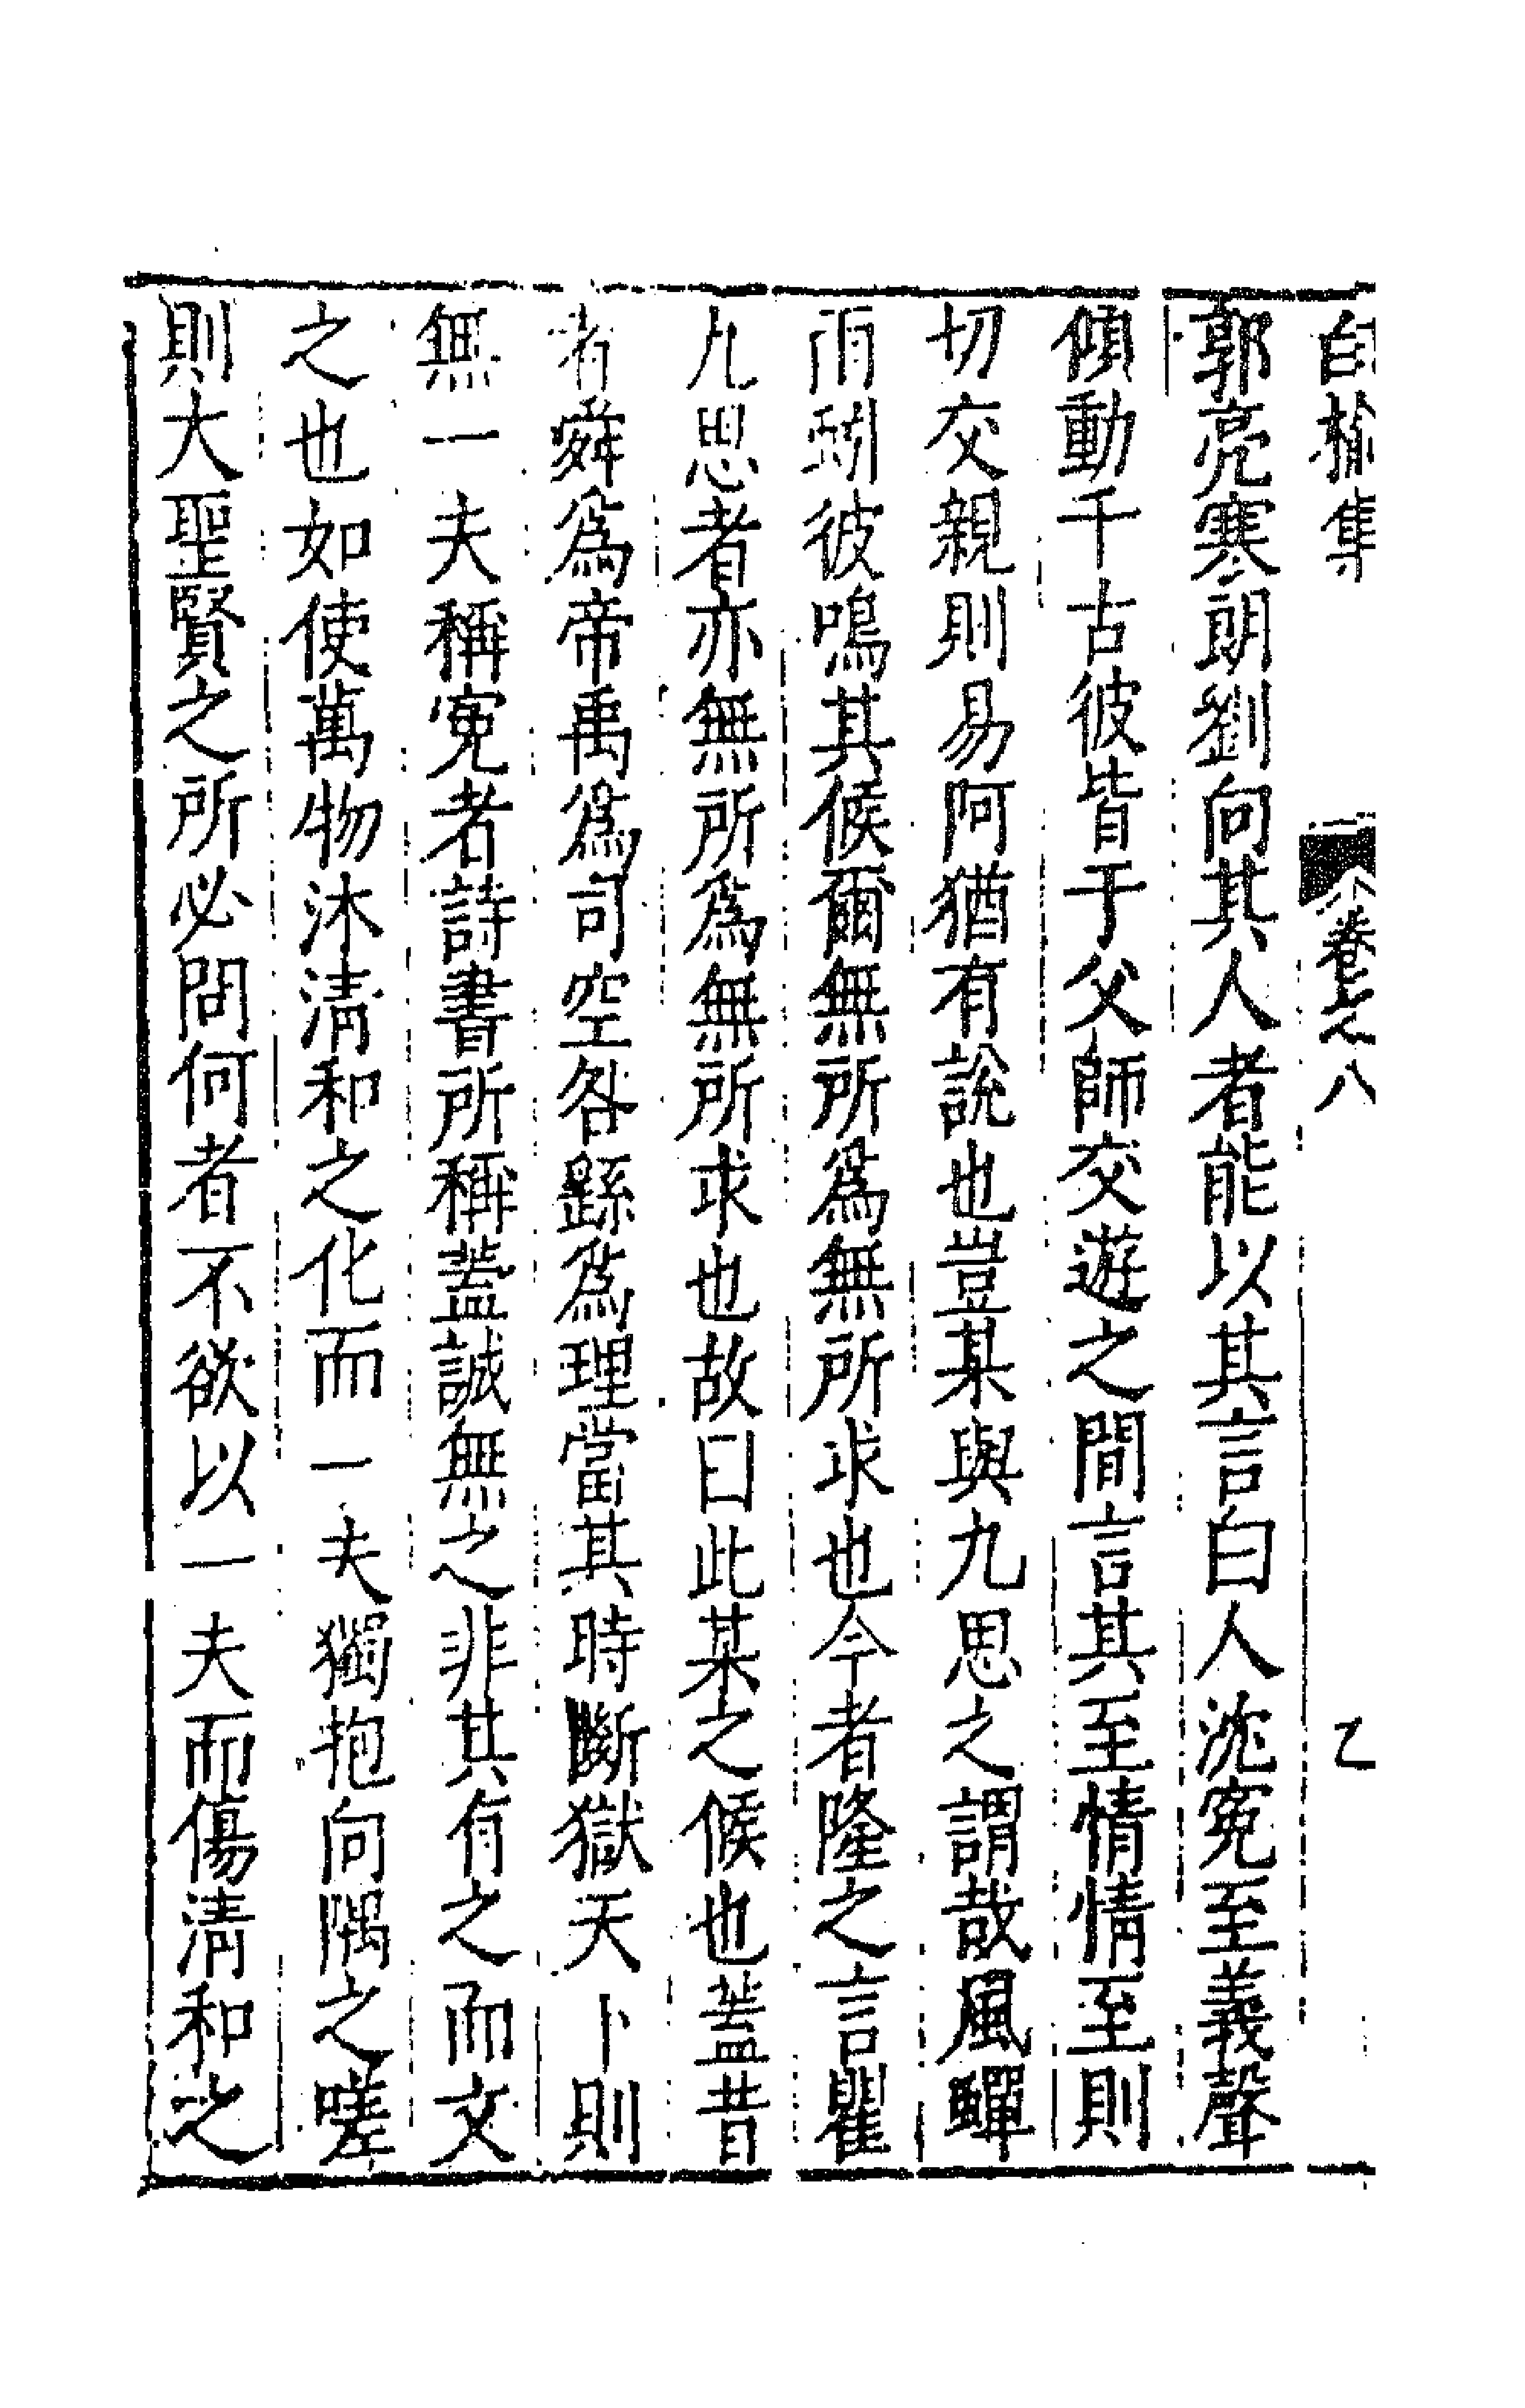 白榆集 卷之八 乙
郭亮寒朗劉向其人者能以其言白人沈寃至義聲
傾動千古彼皆于父師交遊之間言其至情情至則
切交親則易阿猶有說也豈某與九思之謂哉風蟬
雨蛩彼鳴其候爾無所為無所求也今者隆之言瞿
九思者亦無所為無所求也故曰此某之候也蓋昔
者舜為帝禹為司空咎繇為理當其時斷獄天下則
無一夫稱寃者詩書所稱蓋誠無之非其有之而文
之也如使萬物沐清和之化而一夫獨抱向隅之嗟
則大聖賢之所必問何者不欲以一夫而傷清和之